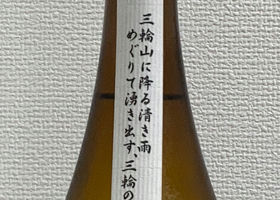 三輪山に降る清き雨
めぐりて湧き出す、三輪の